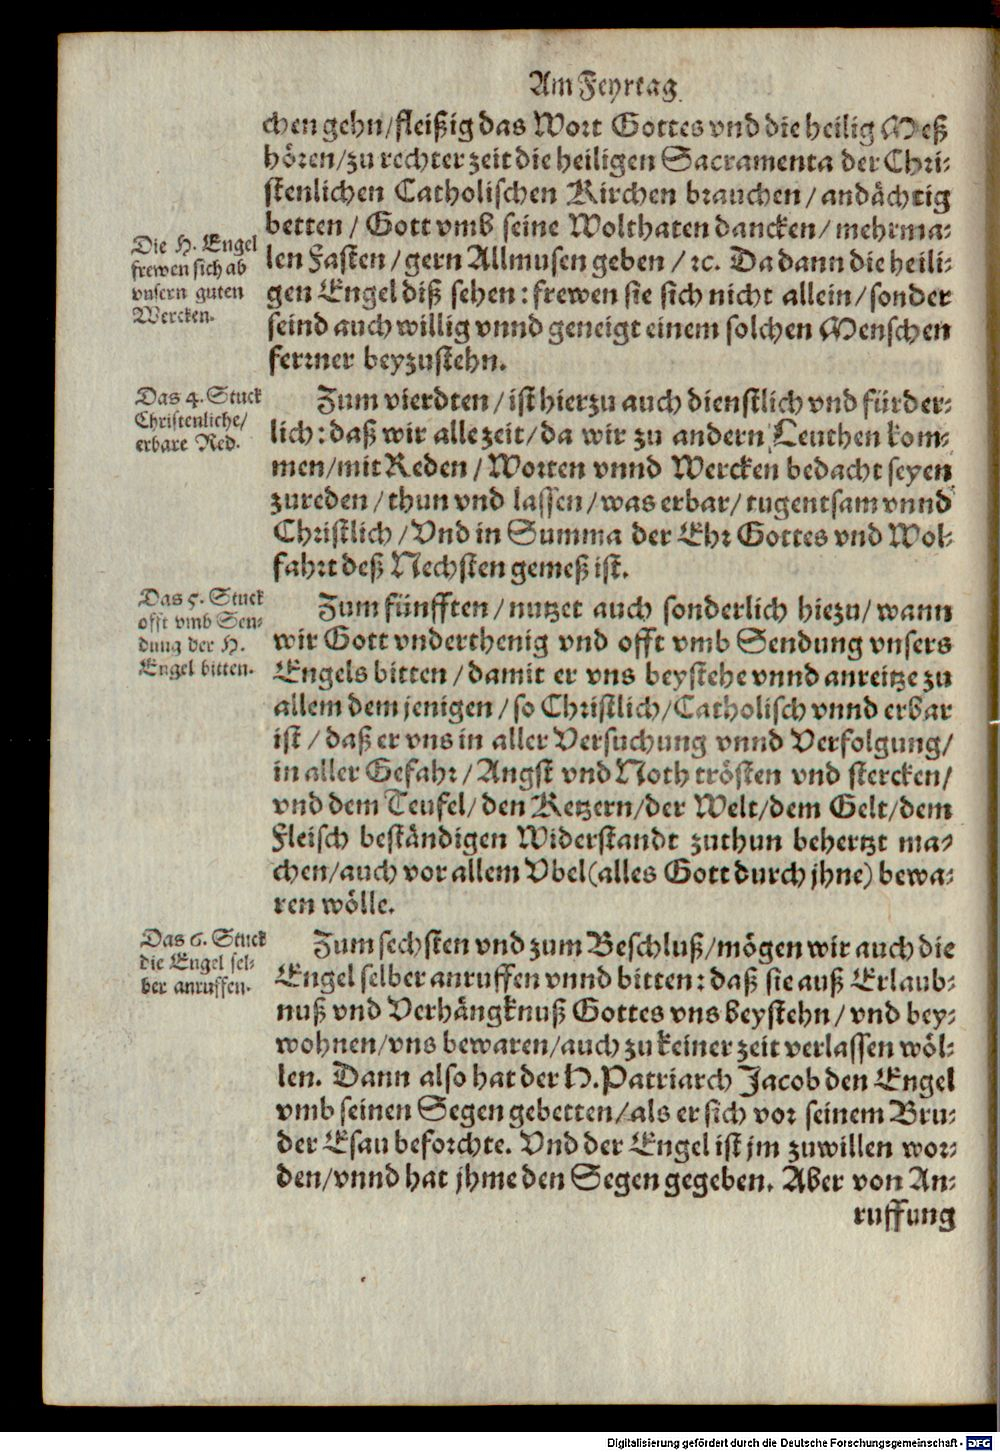 Am Feyrtag
chen gehn/fleißig das Wort Gottes vnd die heilig Meß
hören/zu rechter zeit die heiligen Sacramenta der Chri-
stenlichen Catholischen Kirchen brauchen/andächtig
betten/Gott vmb seine Wolthaten dancken/mehrma-
len Fasten/gern Allmusen geben/ꝛc. Da dann die heili-
gen Engel diß sehen: frewen sie sich nicht allein/sonder
seind auch willig vnnd geneigt einem solchen Menschen
ferrner beyzustehn.
Die H. Engel
frewen sich ab
vnsern guten
Wercken.
Zum vierdten/ist hierzu auch dienstlich vnd fürder-
lich: daß wir alle zeit/da wir zu andern Leuthen kom-
men/mit Reden/Worten vnnd Wercken bedacht seyen
zureden/thun vnd lassen/was erbar/tugentsam vnnd
Christlich/Vnd in Summa der Ehr Gottes vnd Wol-
fahrt deß Nechsten gemeß ist.
Das 4. Stuck
Christenliche/
erbare Red.
Zum fünfften/nutzet auch sonderlich hiezu/wann
wir Gott vnderthenig vnd offt vmb Sendung vnsers
Engels bitten/damit er vns beystehe vnnd anreitze zu
allem dem jenigen/so Christlich/Catholisch vnnd erbar
ist/daß er vns in aller Versuchung vnnd Verfolgung/
in aller Gefahr/Angst vnd Noth trösten vnd stercken/
vnd dem Teufel/den Ketzern/der Welt/dem Gelt/dem
Fleisch beständigen Widerstandt zuthun behertzt ma-
chen/auch vor allem Vbel(alles Gott durch jhne) bewa-
ren wölle.
Das 5. Stuck
offt vmb Sen-
dung der H.
Engel bitten.
Zum sechsten vnd zum Beschluß/mögen wir auch die
Engel selber anruffen vnnd bitten: daß sie auß Erlaub-
nuß vnd Verhängknuß Gottes vns beystehn/vnd bey-
wohnen/vns bewaren/auch zu keiner zeit verlassen wöl-
len. Dann also hat der H. Patriarch Jacob den Engel
vmb seinen Segen gebetten/als er sich vor seinem Bru-
der Esau beforchte. Vnd der Engel ist jm zuwillen wor-
den/vnnd hat jhme den Segen gegeben. Aber von An-
ruffung
Das 6. Stuck
die Engel sel-
ber anruffen.
Digitalisierung gefördert durch die Deutsche Forschungsgemeinschaft - DFG